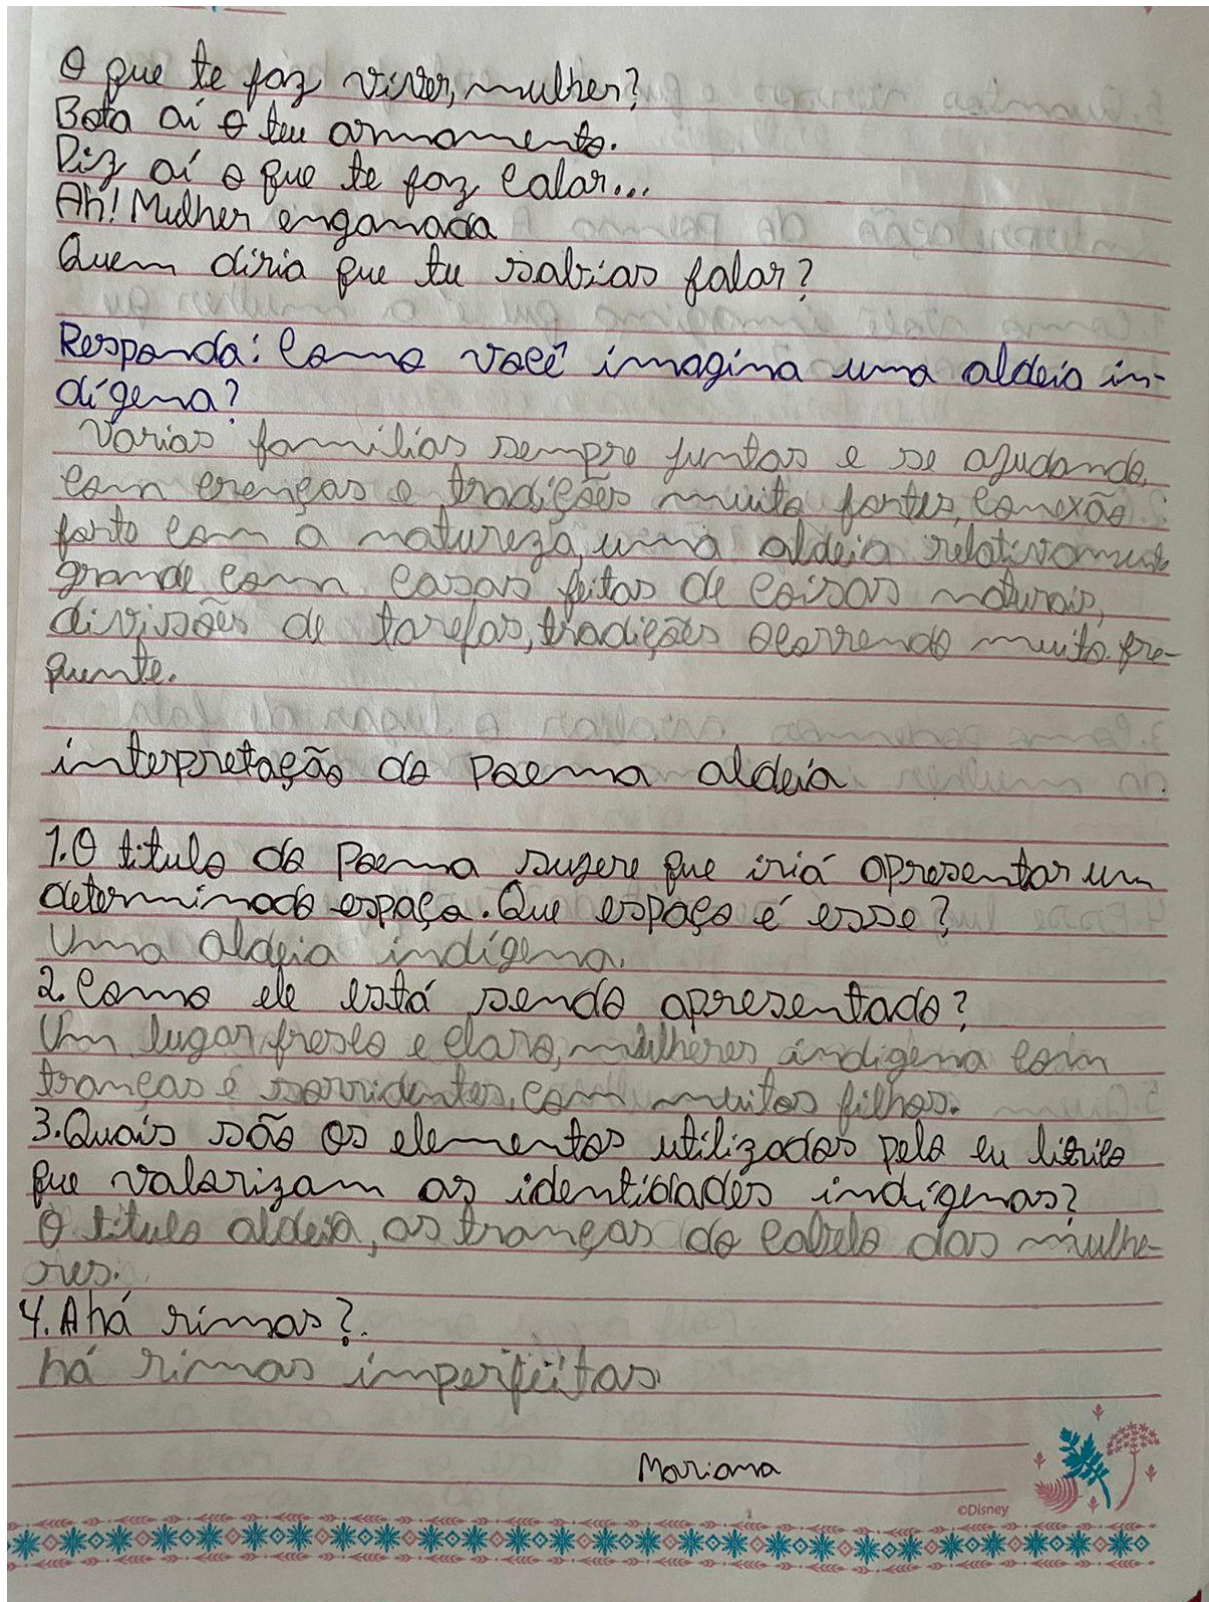 O que te faz viver, mulher?
Bota aí o teu armamento.
Diz aí o que te faz calar...
Ah! Mulher enganada
Quem diria que tu sabias falar?
Responda: Como você imagina uma aldeia in-
dígena?
Varias famílias sempre juntas e se ajudando,
com crenças e tradições muito fortes, conexão
forte com a natureza, uma aldeia relativamente
grande com casas feitas de coisas naturais,
divisões de tarefas, tradições ocorrendo muito fre-
quente.
interpretação do poema aldeia
1. O titulo do Poema sugere que iriá apresentar um
determinado espaço. Que espaço é esse?
Uma aldeia indígena.
2. Como ele está sendo apresentado?
Um lugar fresco e claro, mulheres indigena com
tranças e sorridentes, com muitos filhos.
3. Quais são os elementos utilizados pelo eu lírico
que valorizam as identidades indígenas?
O titulo aldeia, as tranças do cabelo das mulhe-
res.
4. A há rimas?
há rimas imperfeitas
Mariana
©Disney